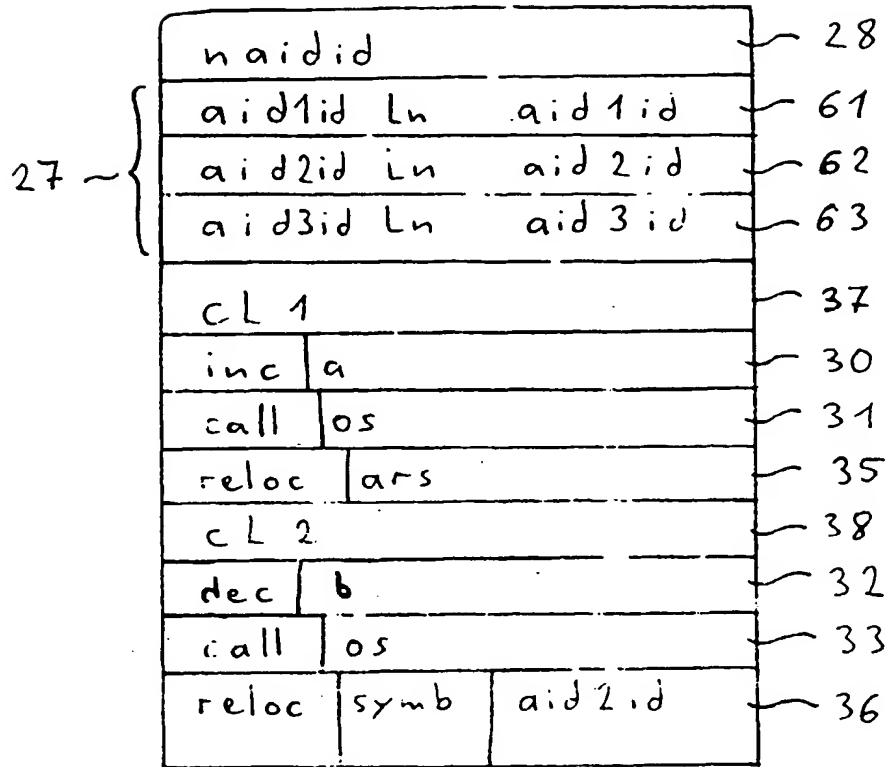 naidid 28
aid1id Ln aid1id 61
27 aid2id Ln aid2id 62
aid3id Ln aid3id 63
CL 1 37
inc a 30
call os 31
reloc ars 35
CL 2 38
dec b 32
call os 33
reloc symb aid2id 36